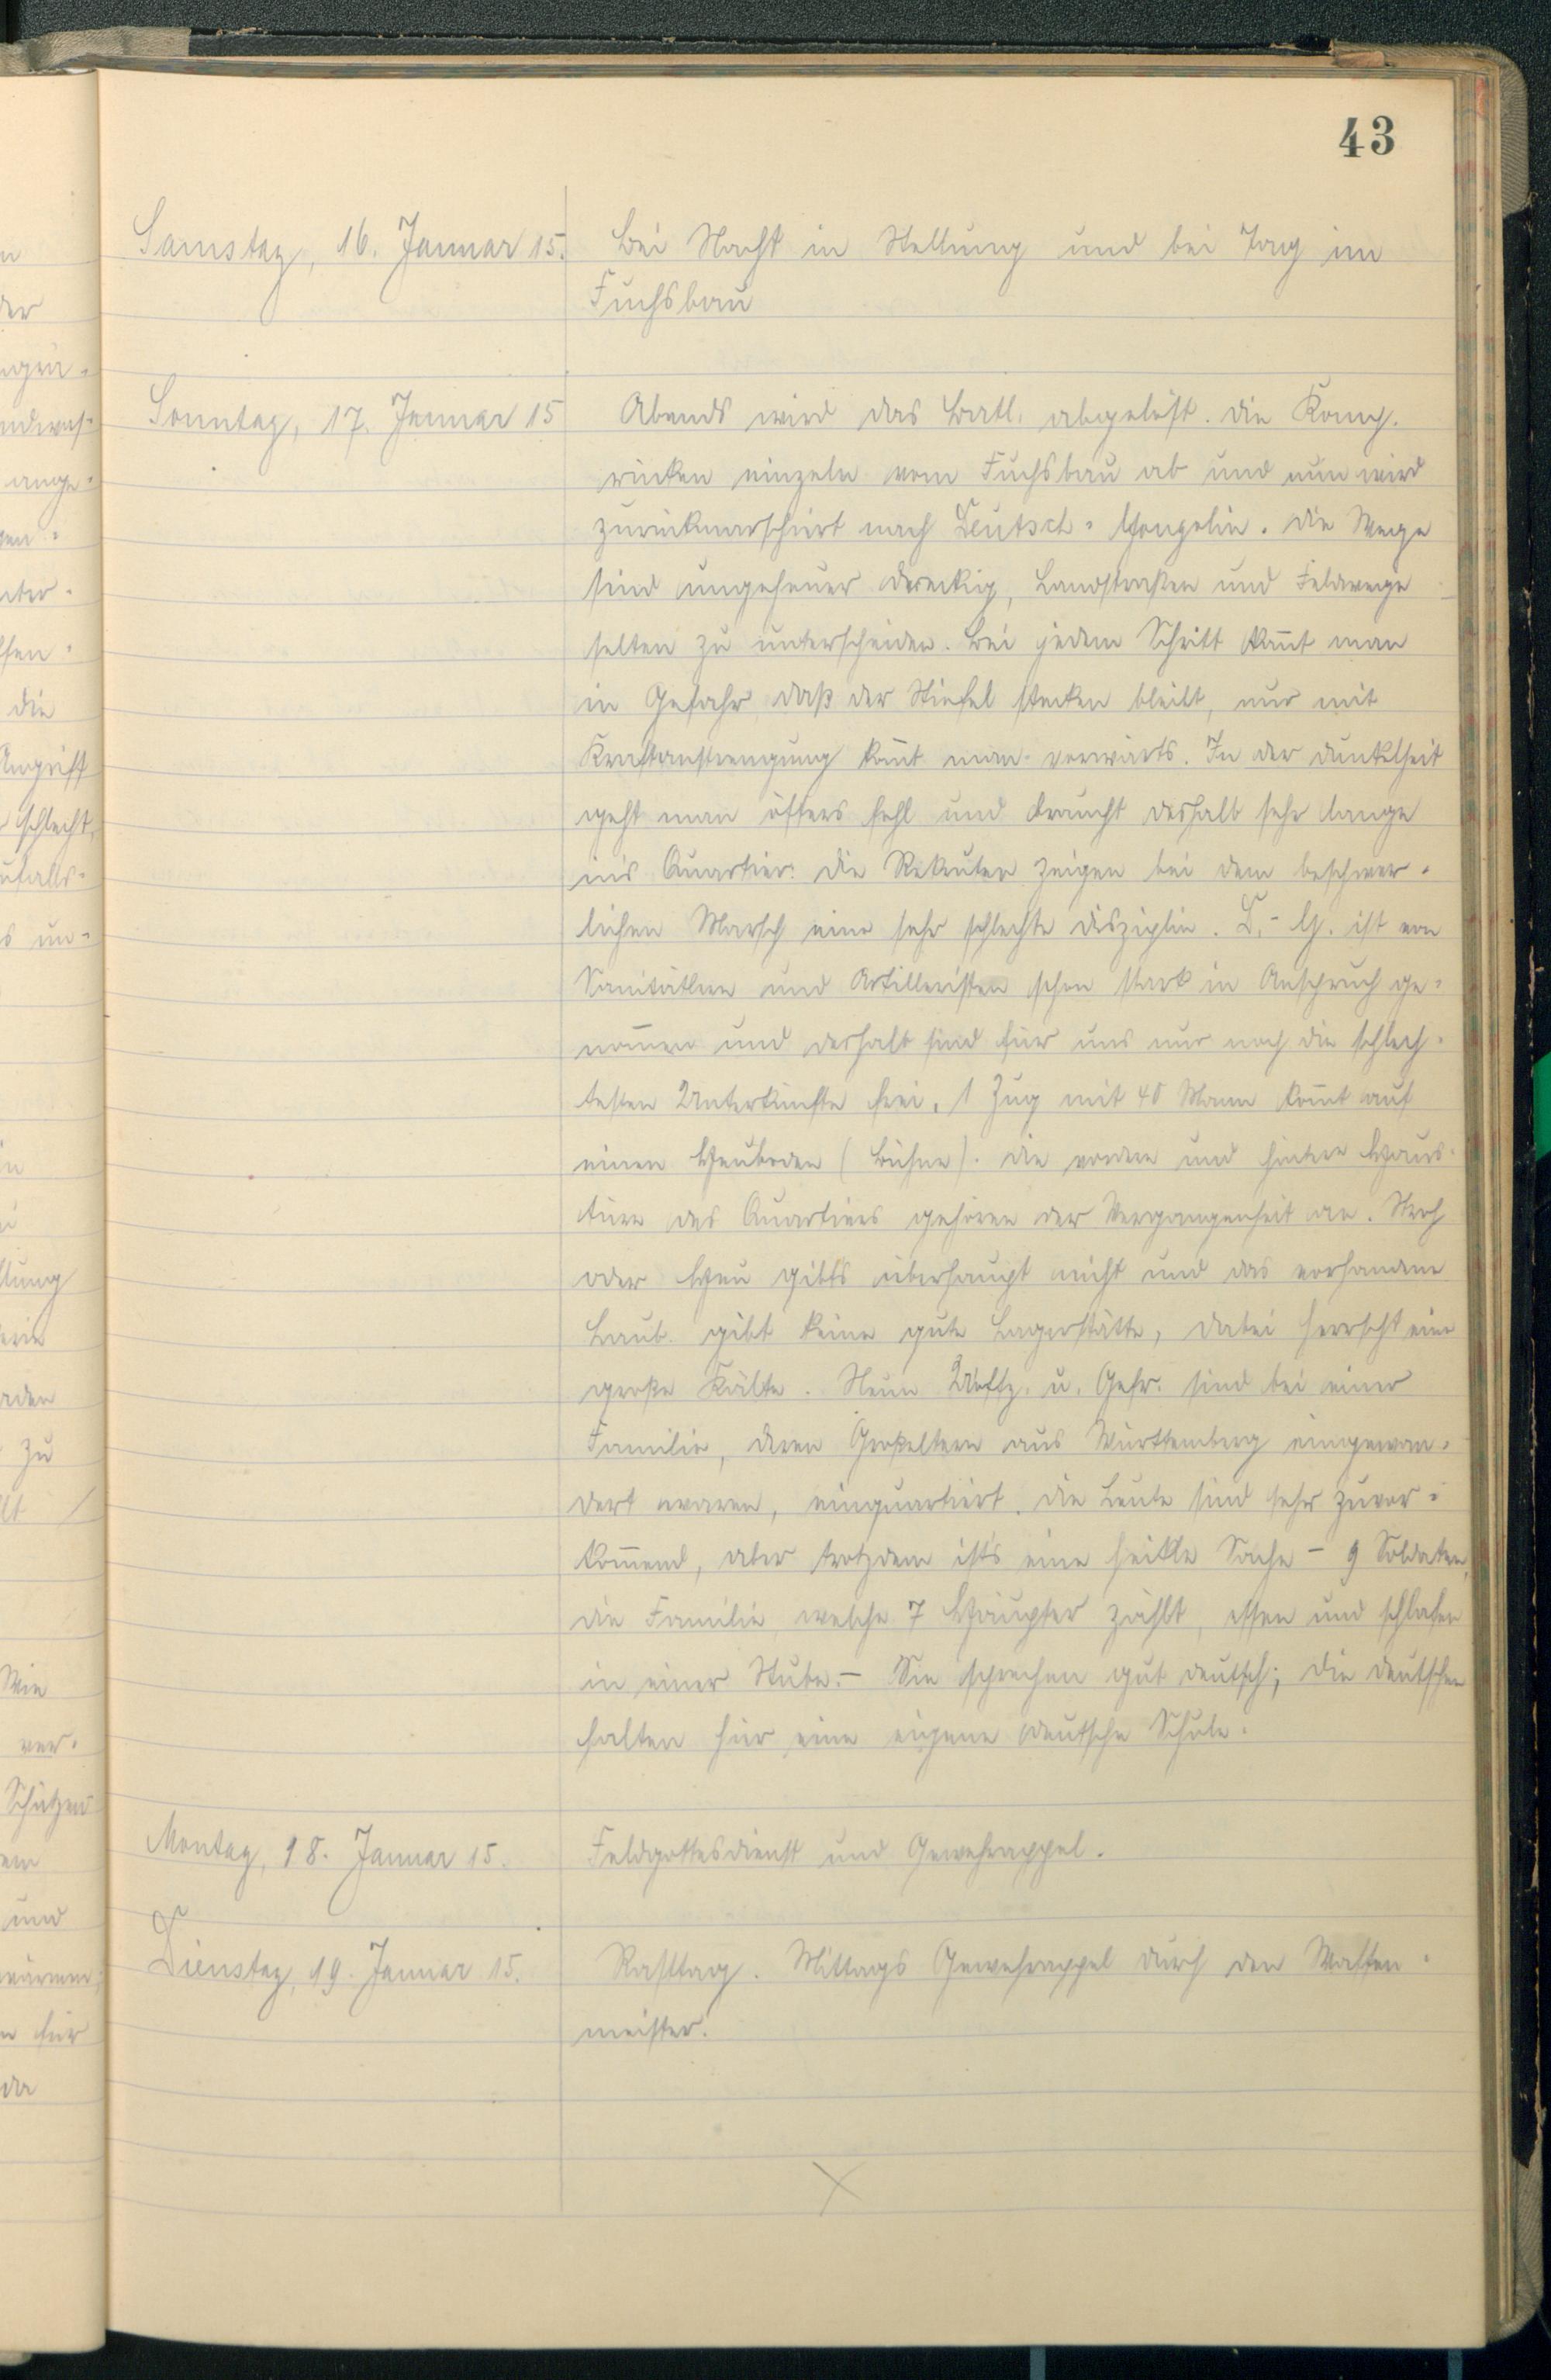 43
Samstag, 16. Januar 15. Bei Nacht in Stellung und bei Tag im
Fuchsbau
Sonntag, 17. Januar 15 Abends wird das Batl. abgelöst. Die Komp.
rücken einzeln vom Fuchsbau ab und nun wird
zurückmarschiert nach Deutsch-
sind ungeheuer dreckig, Landstraßen und Feldwege
selten zu unterscheiden. Bei jedem Schritt kom̄t man
in Gefahr daß der Stiefel stecken bleibt, nur mit
Kraftanstrengung kom̄t man vorwärts. In der Dunkelheit
geht man öfters fehl und braucht deshalb sehr lange
ins Quartier. Die Rekruten zeigen bei dem beschwer-
lichen Marsch eine sehr schlechte Disziplin. D.- ist von
Sanitätern und Artilleristen schon stark in Anspruch ge-
nom̄en und deshalb sind für uns nur noch die schlech-
testen Unterkünfte frei. 1 Zug mit 40 Mann kom̄t auf
einen Heuboden (Bühne). Die vordere und hintere Haus-
türe des Quartiers gehören der Vergangenheit an. Stroh
oder Heu gibt's überhaupt nicht und das vorhandene
Laub gibt keine gute Lagerstätte, dabei herrscht eine
große Kälte. Neun Uoffz. u. Gefr. sind bei einer
Familie, deren Großeltern aus Württemberg eingewan-
dert waren, einquartiert. Die Leute sind sehr zuvor-
kom̄end, aber trotzdem ist's eine heikle Sache - 9 Soldaten,
die Familie, welche 7 Häupter zählt, essen und schlafen
in einer Stube. - Sie sprechen gut deutsch; die Deutschen
halten hier eine eigene deutsche Schule.
Montag, 18. Januar 15. Feldgottesdienst und Gewehrappel.
Dienstag, 19. Januar 15. Rasttag. Mittags Gewehrappel durch den Waffen-
meister.